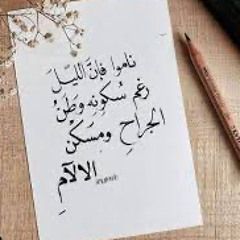 ناموا فإنَّ الليلَ
رغم سكونِهِ وَطَنُ
الجراحِ ومسكَنُ
الالآمِ